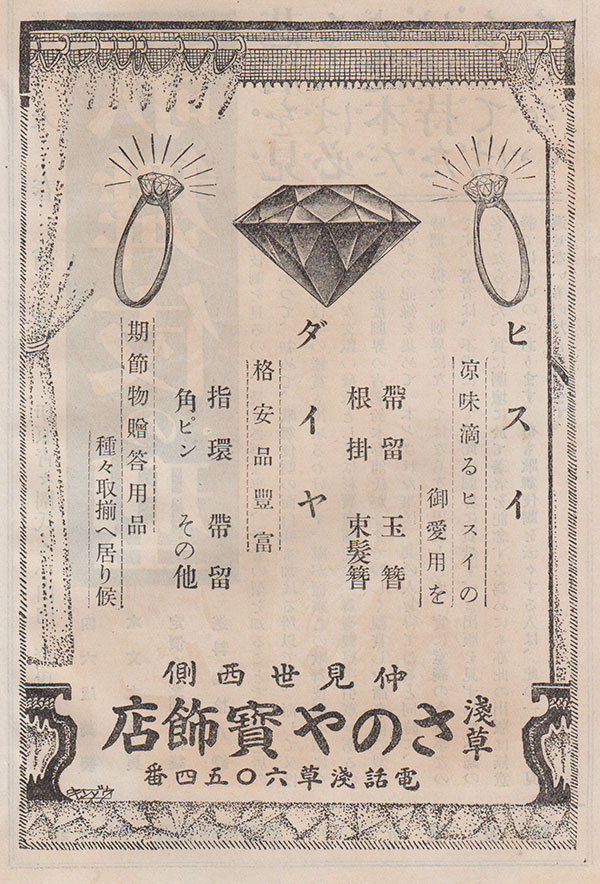 ヒスイ
凉味滴るヒスイの
御愛用を
帶留 玉簪
根掛 束髮簪
ダイヤ
格安品豐富
指環 帶留
角ピン その他
期節物贈答用品
種々取揃へ居り候
仲見世西側
淺草
さのや寶飾店
電話淺草六〇五四番